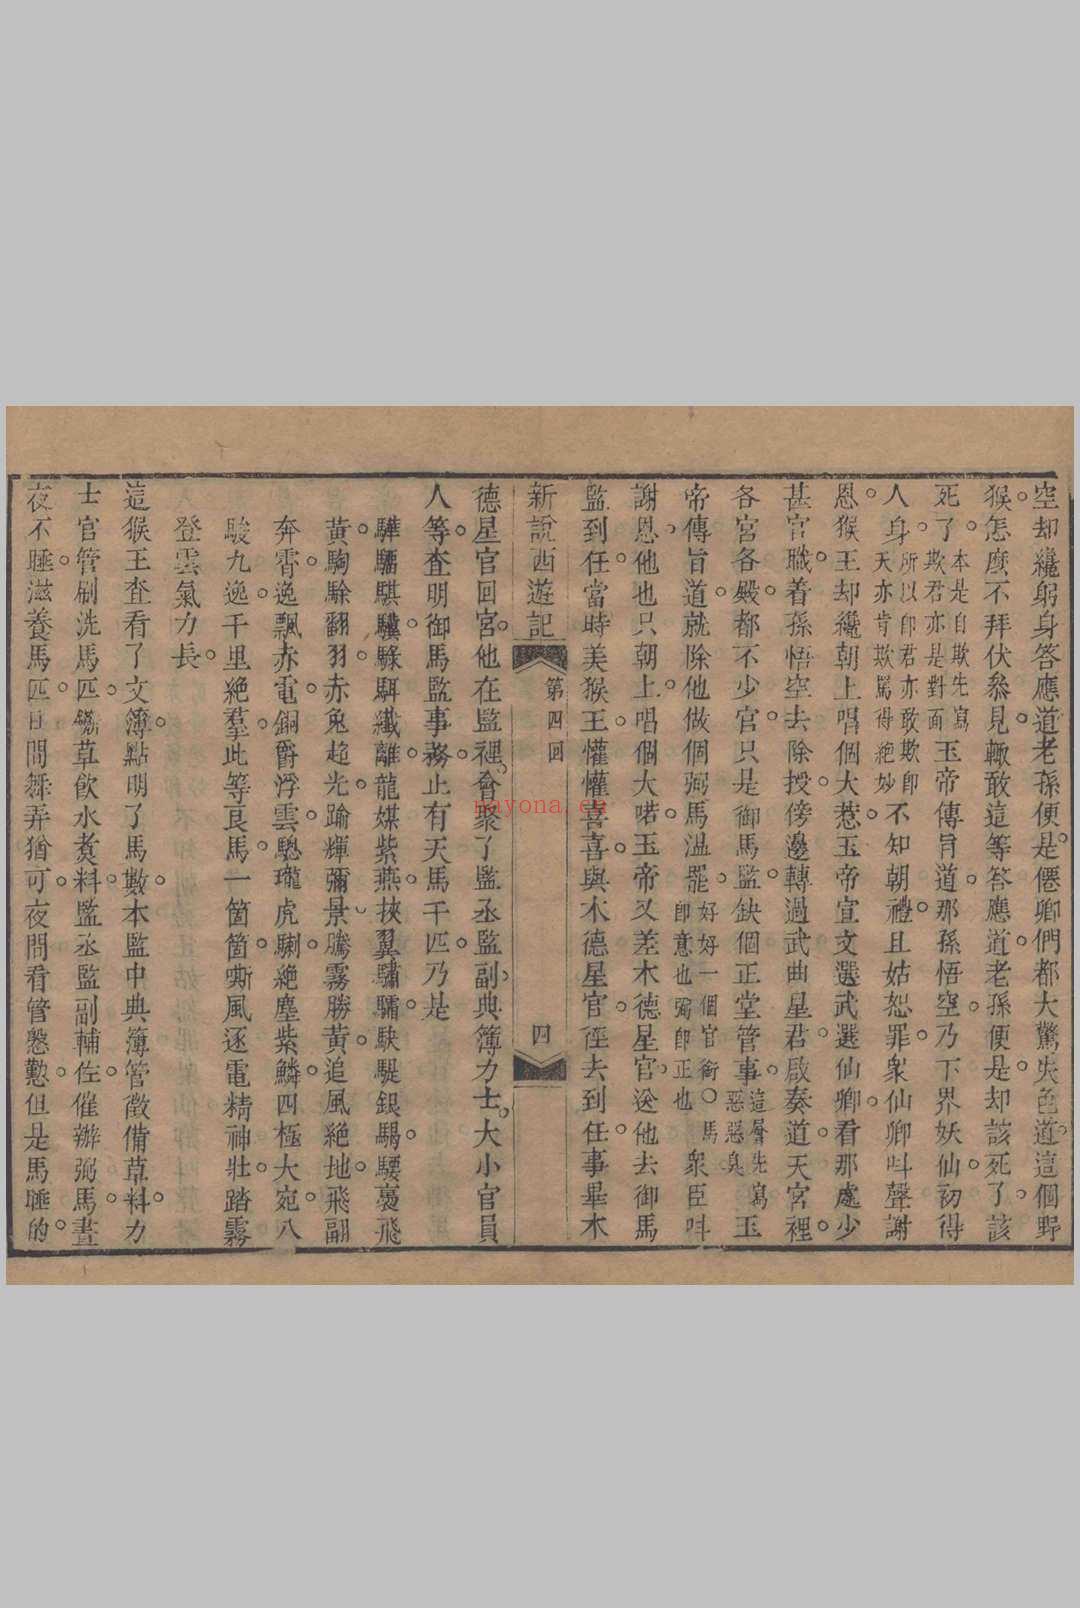 空却纔躬身答應道老孫便是僊卿們都大驚失色道這個野
猴怎麼不拜伏叅見輙敢這等答應道老孫便是却該死了該
死了本是自欺先寫欺君亦是對面玉帝傳旨道那孫悟空乃下界妖仙初得
人身所以卽君亦敢欺卽天亦肯欺罵得絕妙不知朝禮且姑恕罪衆仙卿呌聲謝
恩猴王却纔朝上唱個大惹玉帝宣文選武選仙卿看那處少
甚官職着孫悟空去除授傍邊轉過武曲星君啟奏道天宮裡
各宮各殿都不少官只是御馬監缺個正堂管事這層先寫惡惡臭玉
帝傳旨道就除他做個弼馬溫罷好好一個官銜○馬卽意也弼卽正也衆臣呌
謝恩他也只朝上唱個大喏玉帝又差木德星官送他去御馬
監到任當時美猴王懽懽喜喜與木德星官徑去到任事畢木
新說西遊記
第四回
四
德星官回宮他在監裡會聚了監丞監副典簿力士大小官員
人等查明御馬監事務止有天馬千匹乃是
驊騮騏驥騄駬纖離龍媒紫燕挾翼驌驦駃騠銀騔騕褭飛
黃騊駼翻羽赤兔超光踰輝彌景騰霧勝黃追風絕地飛翮
奔霄逸飄赤電銅爵浮雲驄瓏虎駠絕塵紫鱗四極大宛八
駿九逸千里絕羣此等良馬一箇箇嘶風逐電精神壯踏霧
登雲氣力長
這猴王查看了文簿點明了馬數本監中典簿管徵備草料力
士官管刷洗馬匹鍘草飲水煑料監丞監副輔佐催辦弼馬晝
夜不睡滋養馬匹日間舞弄猶可夜間看管慇懃但是馬睡的
nayona.cn